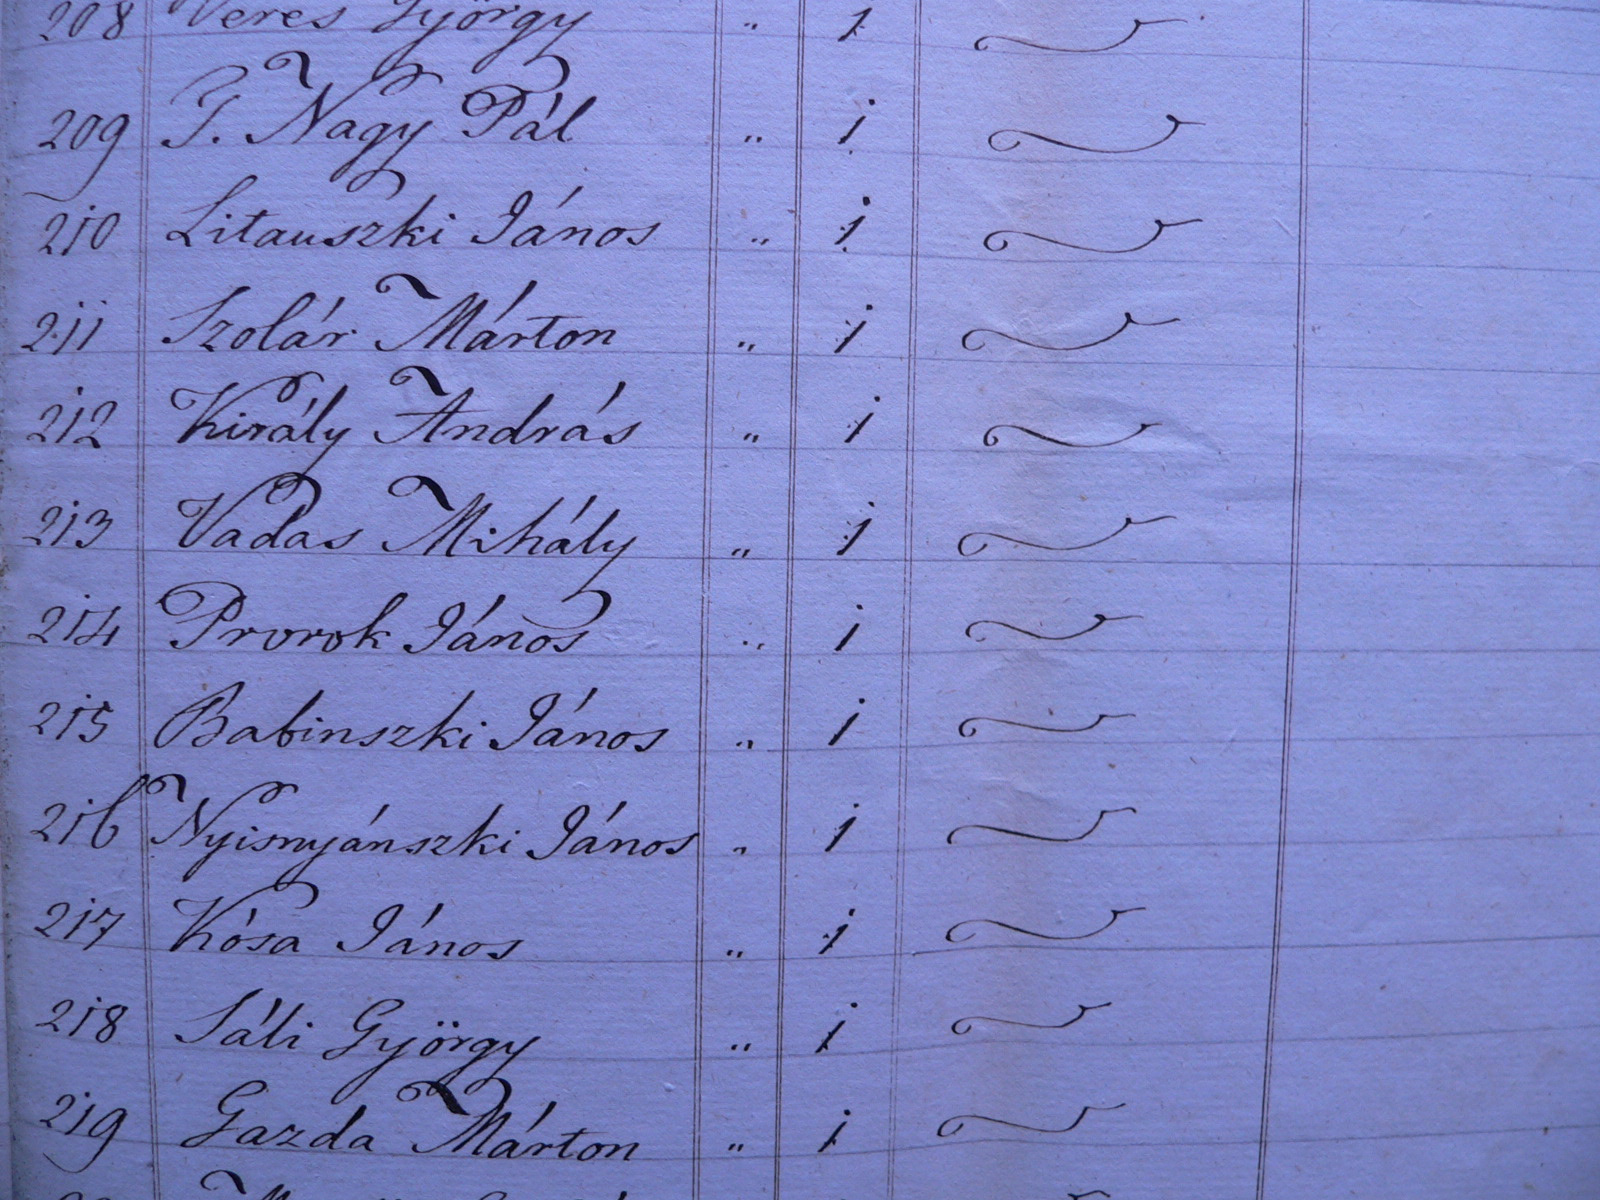 208 Veres György „ 1
209 P. Nagy Pál „ 1
210 Litauszki János „ 1
211 Szolár Márton „ 1
212 Király András „ 1
213 Vadas Mihály „ 1
214 Prorok János „ 1
215 Babinszki János „ 1
216 Nyisnyánszki János „ 1
217 Kósa János „ 1
218 Sáli György „ 1
219 Gazda Márton „ 1